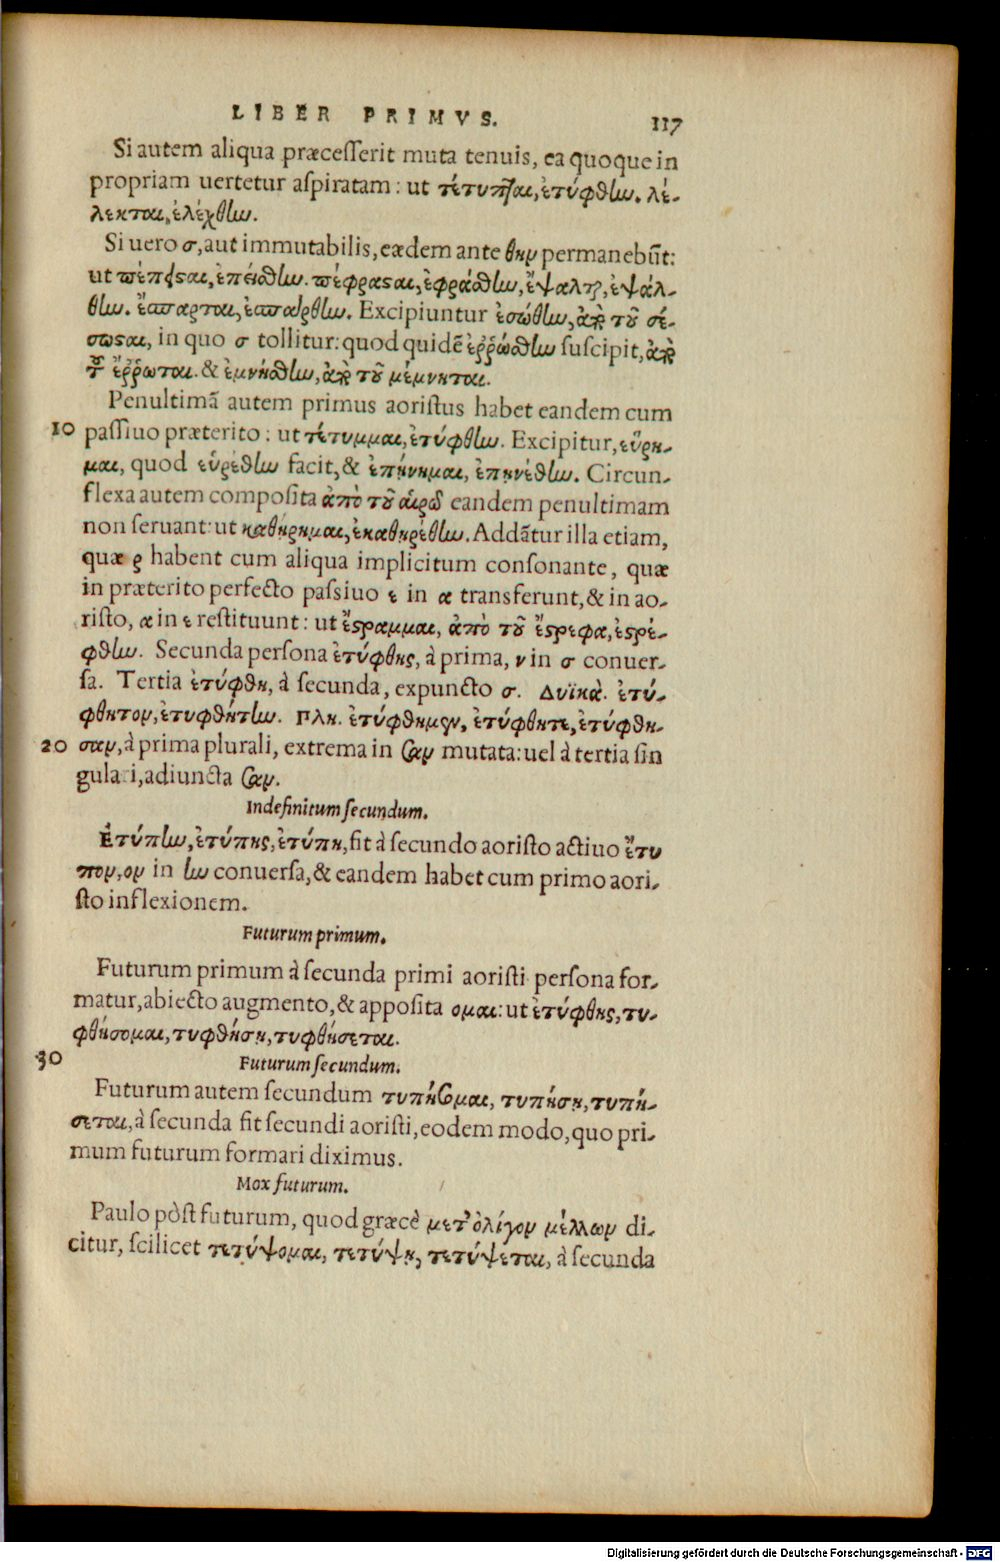 LIBER PRIMVS. 117
Si autem aliqua præcesserit muta tenuis, ea quoque in
propriam uertetur aspiratam: ut τέτυπται, ἐτύφθην. λέ-
λεκται, ἐλέχθην.
Si uero σ, aut immutabilis, eædem ante θην permanebũt:
ut πέπεισαι, ἐπείσθην. πέφρασαι, ἐφράσθην, ἔψαλται, ἐψάλ-
θην. ἔσπαρται, ἐσπάρθην. Excipiuntur ἐσώθην, ἀπὸ τοῦ σέ-
σωσαι, in quo σ tollitur: quod quidẽ ἐῤῥώσθην suscipit, ἀπὸ
τοῦ ἔῤῥωται. & ἐμνήσθην, ἀπὸ τοῦ μέμνηται.
Penultimã autem primus aoristus habet eandem cum
10 passiuo præterito: ut τέτυμμαι, ἐτύφθην. Excipitur, εὕρη-
μαι, quod εὑρέθην facit, & ἐπῄνημαι, ἐπῃνέθην. Circun-
flexa autem composita ἀπὸ τοῦ αἱρῶ eandem penultimam
non seruant: ut καθῄρημαι, ἐκαθῃρέθην. Addãtur illa etiam,
quæ ρ habent cum aliqua implicitum consonante, quæ
in præterito perfecto passiuo ε in α transferunt, & in ao-
risto, α in ε restituunt: ut ἔστραμμαι, ἀπὸ τοῦ ἔστρεφα, ἐστρέ-
φθην. Secunda persona ἐτύφθης, à prima, ν in σ conuer-
sa. Tertia ἐτύφθη, à secunda, expuncto σ. Δυϊκὰ. ἐτύ-
φθητον, ἐτυφθήτην. Πλη. ἐτύφθημεν, ἐτύφθητε, ἐτύφθη-
20 σαν, à prima plurali, extrema in σαν mutata: uel à tertia sin
gulari, adiuncta σαν.
Indefinitum secundum.
Ἐτύπην, ἐτύπης, ἐτύπη, fit à secundo aoristo actiuo ἔτυ
πον, ον in ην conuersa, & eandem habet cum primo aori-
sto inflexionem.
Futurum primum.
Futurum primum à secunda primi aoristi persona for-
matur, abiecto augmento, & apposita ομαι: ut ἐτύφθης, τυ-
φθήσομαι, τυφθήσῃ, τυφθήσεται.
30 Futurum secundum.
Futurum autem secundum τυπήσομαι, τυπήσῃ, τυπή-
σεται, à secunda fit secundi aoristi, eodem modo, quo pri-
mum futurum formari diximus.
Mox futurum.
Paulo pòst futurum, quod græcè μετ' ὀλίγον μέλλων di-
citur, scilicet τετύψομαι, τετύψῃ, τετύψεται, à secunda
Digitalisierung gefördert durch die Deutsche Forschungsgemeinschaft - DFG